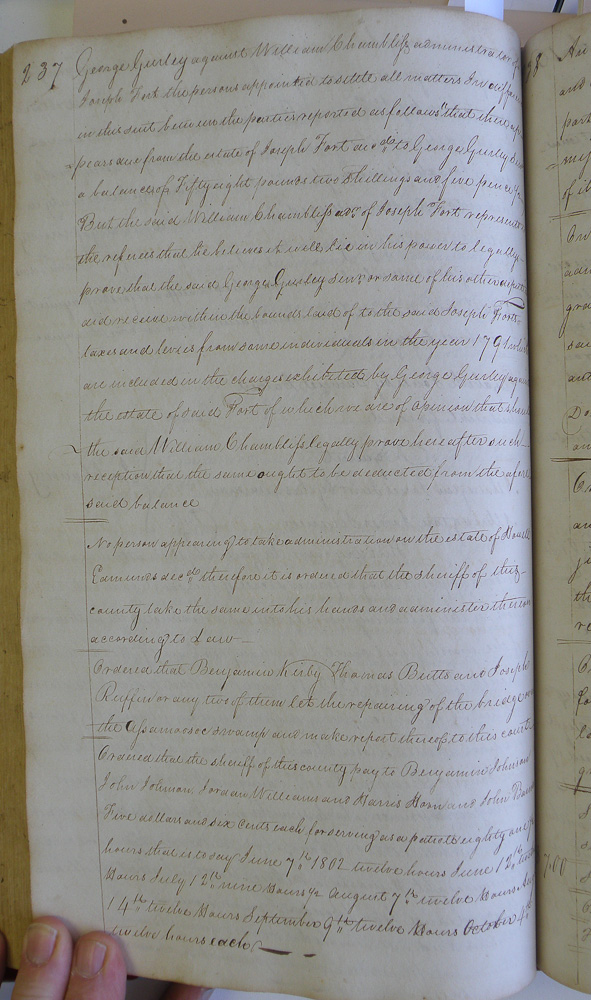 237 George Gurley against William Chambliss administrator of
Joseph Fort the persons appointed to settle all matters In
in this suit between the parties reported as follows "that there ap
pears due from the estate of Joseph Fort decd. to George Gurley Sen
a balance of Fifty eight pounds two shillings and five pence
But the said William Chambliss adr. of Joseph Fort represents
the referees that he believes it will lie in his power to legally
prove that the said George Gurley Senr. or some of his other
did receive within the bounds laid of to the said Joseph Fort
taxes and levies from some individuals in the year 1791 which
are included in the charges exhibited by George Gurley again
the estate of said Fort of which we are of opinion that should
the said William Chambliss legally prove hereafter such
reception that the same ought to be deducted from the afore
said balance
No person appearing to take administration on the estate of Howell
Edmunds decd. therefore it is ordered that the sheriff of this
county take the same into his hands and administer thereon
according to Law
Ordered that Benjamin Kirby Thomas Butts and Joseph
Ruffin or any two of them let the repairing of the bridge
the Assamoosoc swamp and make report thereof to this court
Ordered that the sheriff of this county pay to Benjamin Johnson
John Johnson Jordan Williams and Harris Horn and John
Five dollars and six Cents each for serving as a patrole eighty one
hours that is to day June 7th 1802 twelve hours June 12th
Hours July 12th nine Hours August 7th twelve Hours
14th twelve Hours September 9th twelve Hours October 4th
twelve hours each